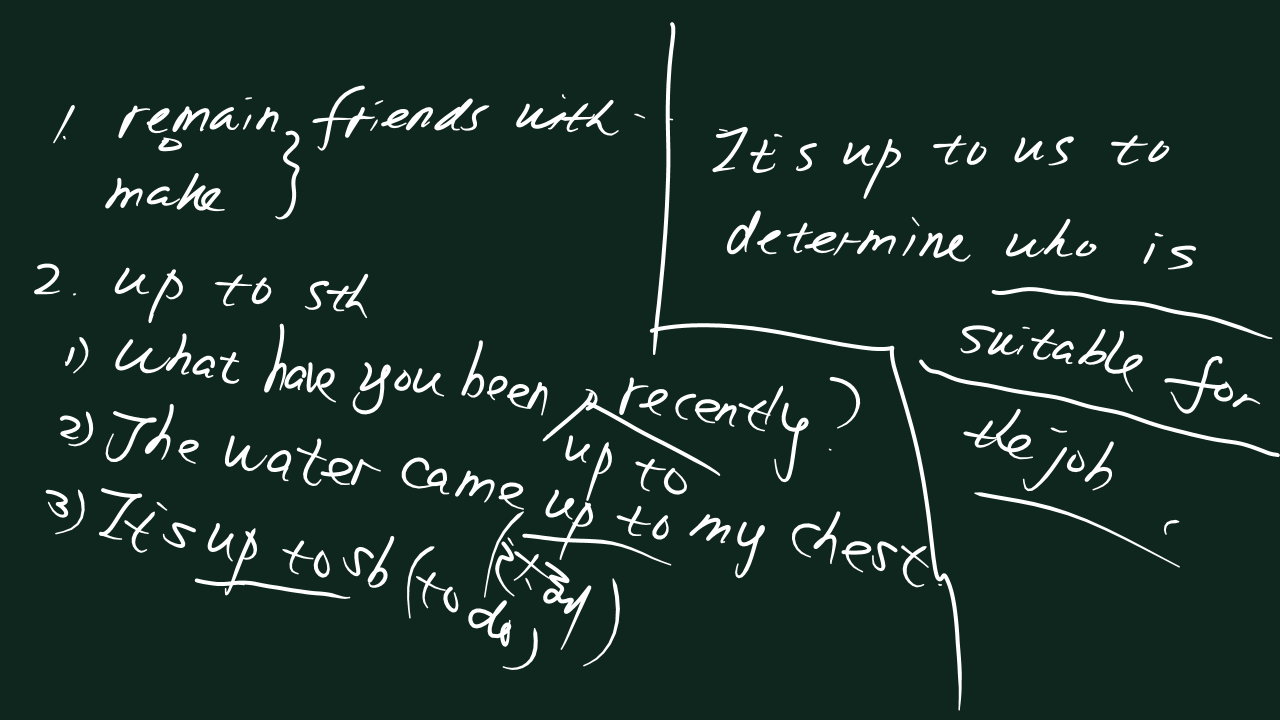 1. remain } friends with ...
make
2. up to sth
1) What have you been recently?
up to
2) The water came up to my chest.
3) It's up to sb (to do,
It's up to us to
determine who is
suitable for
the job